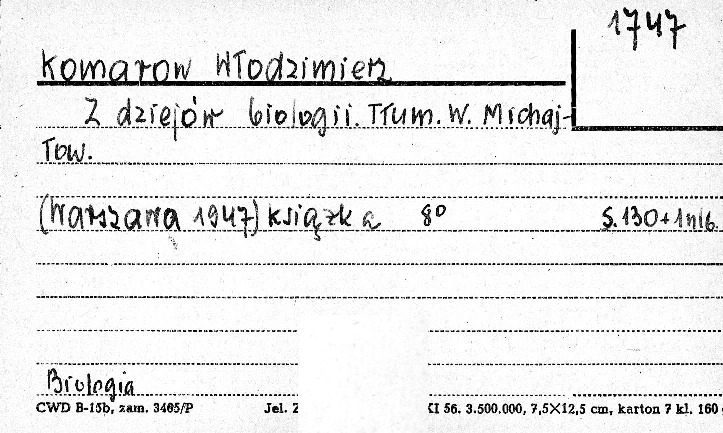 1747
Komarow Włodzimierz
Z dziejów biologii. Tłum. W. Michaj-
łow.
(Warszawa 1947) książka 8⁰ S. 130+1nlb.
Biologia
CWD B-15b, zam. 3465/P Jel. Z XI 56. 3.500.000, 7,5×12,5 cm, karton 7 kl. 160